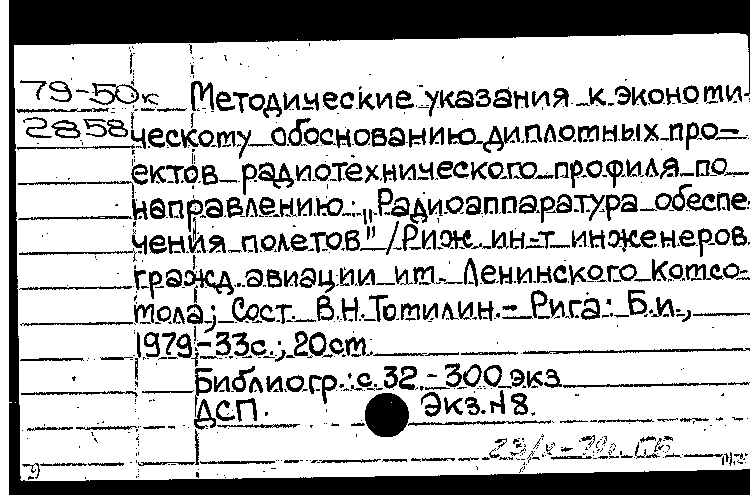 79-50к Методические указания к экономи-
2858 ческому обоснованию дипломных про-
ектов радиотехнического профиля по
направлению: „Радиоаппаратура обеспе
чения полетов" /Риж. ин-т инженеров
гражд. авиации им. Ленинского Комсо-
мола; Сост. В.Н. Томилин. - Рига: Б.и.,
1979, -33с.; 20см.
Библиогр.: с. 32. - 300 экз
ДСП. Экз. N8.
23/X-79г.
9